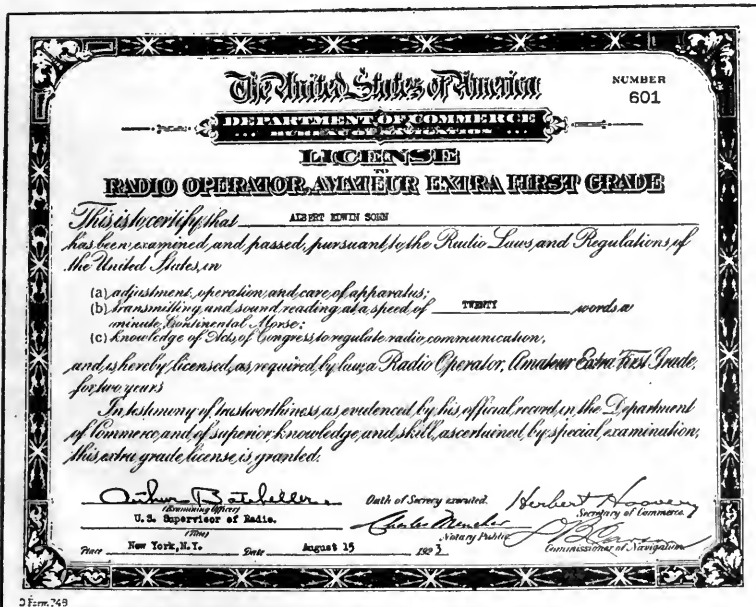 The United States of America
NUMBER
601
DEPARTMENT OF COMMERCE
BUREAU OF NAVIGATION
LICENSE
TO
RADIO OPERATOR, AMATEUR EXTRA FIRST GRADE
This is to certify that ALBERT EDWIN SOHN
has been examined and passed, pursuant to the Radio Laws and Regulations of
the United States, in
(a) adjustment, operation, and care of apparatus;
(b) transmitting and sound reading at a speed of TWENTY words a
minute, Continental Morse;
(c) knowledge of Acts of Congress to regulate radio communication,
and is hereby licensed, as required by law, a Radio Operator, Amateur Extra First Grade,
for two years
In testimony of trustworthiness as evidenced by his official record in the Department
of Commerce and of superior knowledge and skill, ascertained by special examination,
this extra grade license is granted.
Arthur Batcheller
(Examining Officer)
U.S. Supervisor of Radio.
(Title)
Oath of Secrecy executed.
Charles Mencher
Notary Public
Herbert Hoover
Secretary of Commerce.
Commissioner of Navigation
Place New York, N.Y. Date August 15 1923
Form 749